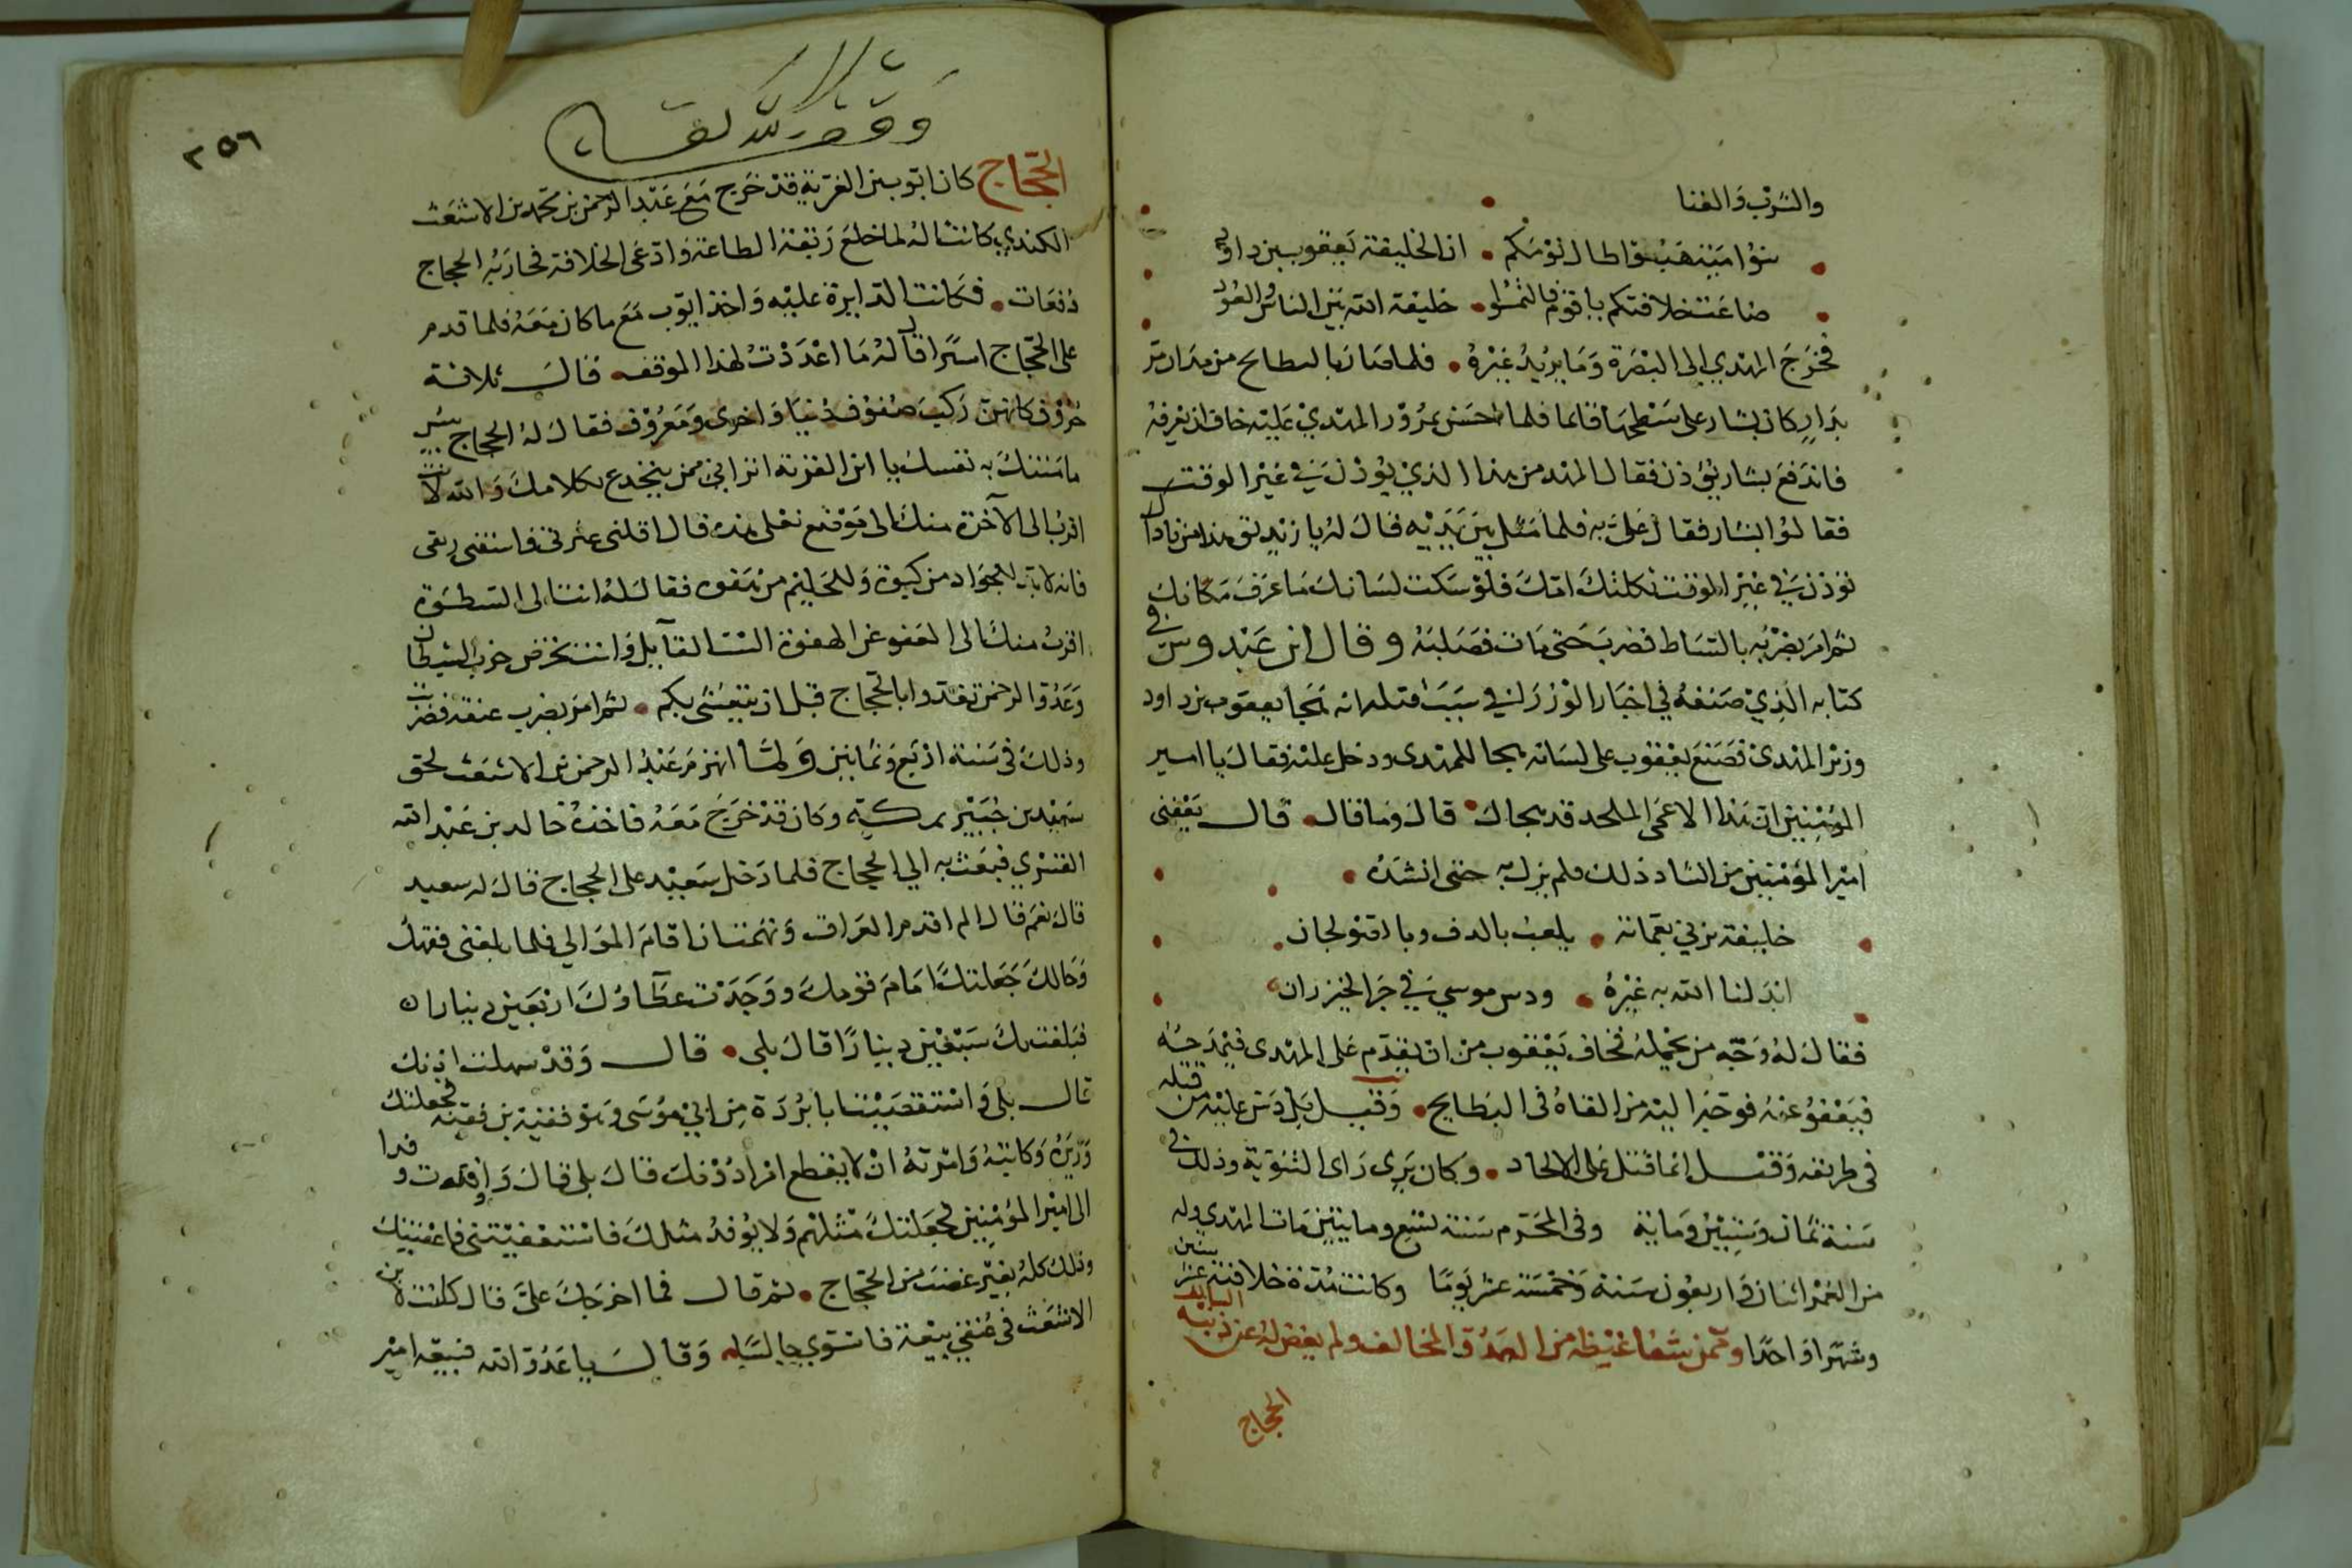 والشرب والغنا
بنوا امية هبوا طال نومكم • ان الخليفة يعقوب بن داود
ضاعت خلافتكم يا قوم فالتمسوا • خليفة الله بين الناي والعود
فخرج المهدي الى البصرة وما يريد غيره • فلما صار بالبطايح من مر
بدار كان بشار على سطحها قايما فلما احس بمرور المهدي عليه خاف ان يعرفه
فاندفع بشار يؤذن فقال المهدي من هذا الذي يؤذن في غير الوقت
فقالوا بشار فقال علي به فلما مثل بين يديه قال له يا زنديق هذا من
تؤذن في غير الوقت ثكلتك امك فلو سكت لسانك ما عرف مكانك
ثم امر بضربه بالسياط فضرب حتى مات فصلبه وقال ابن عبدوس في
كتابه الذي صنفه في اخبار الوزرا في سبب قتله انه هجا يعقوب بن داود
وزير المهدي فصنع يعقوب على لسانه هجا للمهدي ودخل عليه فقال يا امير
المؤمنين ان هذا الاعمى الملحد قد هجاك • قال وما قال • قال يعفني
امير المؤمنين من انشاد ذلك فلم يزل به حتى انشده •
خليفة يزني بعماته • يلعب بالدف وبالصولجان •
ابدلنا الله به غيره • ودس موسى في حر الخيزران •
فقال له وجه من يحمله فخاف يعقوب من ان يقدم على المهدي فيمدحه
فيعفو عنه فوجه اليه من القاه في البطايح • وقيل بل دس عليه من قتله
في طريقه وقيل انما قتل على الالحاد • وكان يرى راي الثنوية وذلك في
سنة ثمان وستين وماية وفي المحرم سنة تسع وماتين مات المهدي وله
من العمر اثنان واربعون سنة وخمسة عشر يوما وكانت مدة خلافته عشر سنين
وشهرا واحدا وممن شفا غيظه من العدو المخالف ولم يغض له عن ذنبه السالف
الحجاج
وقف لله تعالى
٢٥٦
الحجاج كان ايوب بن القرية قد خرج مع عبد الرحمن بن محمد بن الاشعث
الكندي كاتبا له لما خلع ربقة الطاعة وادعى الخلافة فحاربه الحجاج
دفعات • فكانت الدايرة عليه واخذ ايوب مع ما كان معه فلما قدم
على الحجاج اسيرا قال له ما اعددت لهذا الموقف • قال ثلاثة
حروف كانهن ركب صفوف دنيا واخرى ومعروف فقال له الحجاج بئس
ما منيت به نفسك يا ابن القرية اتراني ممن ينخدع بكلامك والله لانت
اقرب الى الآخرة منك الى موضع نعلي هذه قال اقلني عثرتي واسقني ريقي
فانه لا بد للجواد من كبوة وللحليم من هفوة فقال له انت الى السطوة
اقرب منك الى العفو عن الهفوة الست القايل وانت تحرض حزب الشيطان
وعدو الرحمن تغدوا بالحجاج قبل ان يتعشى بكم • ثم امر بضرب عنقه فضربت
وذلك في سنة اربع وثمانين ولما انهزم عبد الرحمن بن الاشعث لحق
سعيد بن جبير بمكة وكان قد خرج معه فاخذه خالد بن عبد الله
القسري فبعث به الي الحجاج فلما دخل سعيد على الحجاج قال له سعيد
قال نعم قال الم اقدم العراق وهممت ان اقام الموالي فلما بلغني فقهك
وحالك جعلتك امام قومك ووجدت عطاوك اربعين دينارا
فبلغت بك سبعين دينارا قال بلى • قال وقد سهلت اذنك
قال بلى واستقضيت ابا بردة بن ابي موسى وهو فقيه بن فقيه فجعلتك
وزيره وكاتبه وامرته ان لا يقطع امرا دونك قال بلى قال واوفدت وفدا
الى امير المؤمنين فجعلتك مثلهم ولا يوفد مثلك فاستعفيتني فاعفيتك
وذلك كله بغير غضب من الحجاج • ثم قال فما اخرجك علي قال كانت لابن
الاشعث في عنقي بيعة فاستوى جالسا • وقال يا عدو الله فبيعة امير